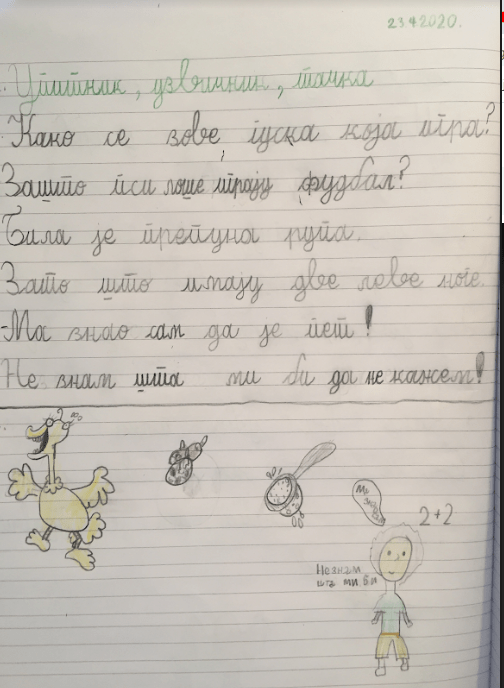 23 4 2020.
Упитник, узвичник, тачка
Како се зове гуска која игра?
Зашто пси лоше играју фудбал?
Била је препуна рупа.
Зато што имају две леве ноге.
-Ма знао сам да је пет!
Не знам шта ми би да не кажем!
2+2
Не знам
шта ми би